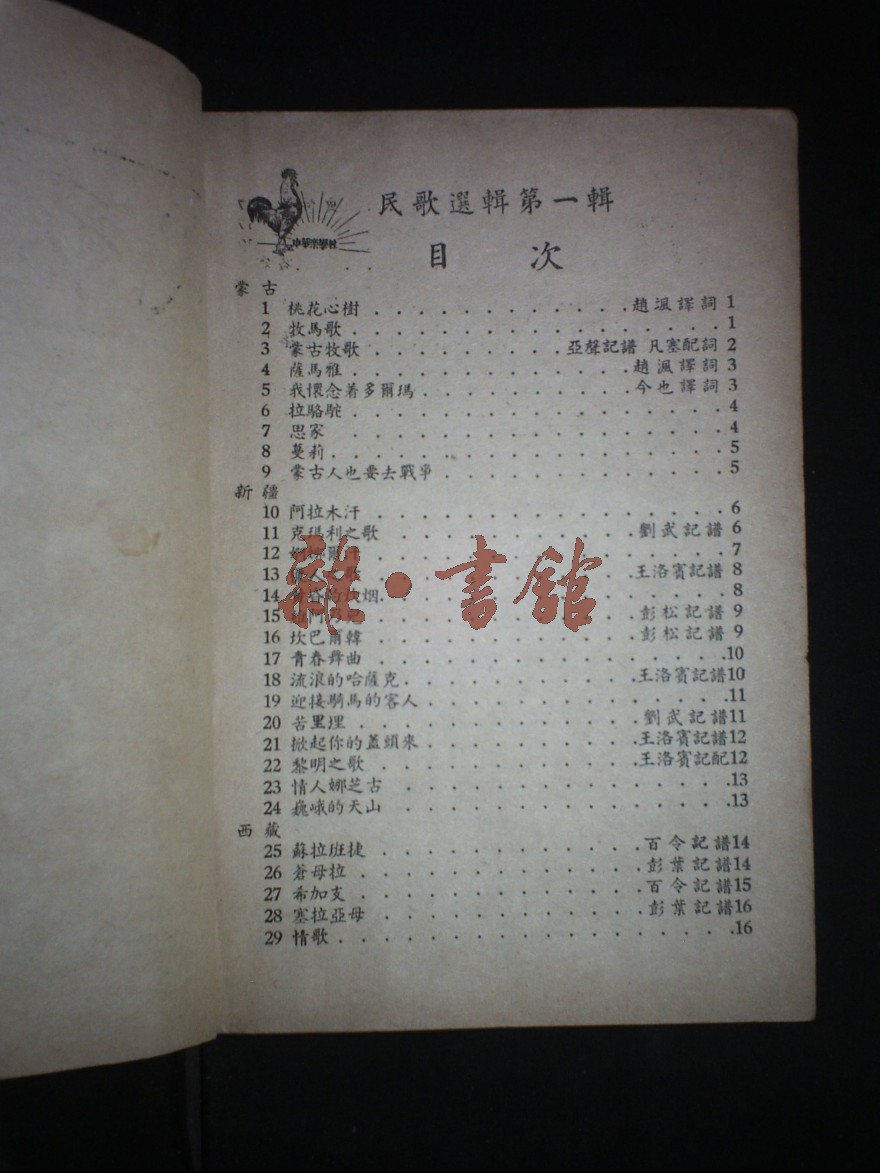 民歌選輯第一輯
中華樂學社
目 次
蒙古
1 桃花心樹 . . . . . . . . . . . . 趙渢譯詞 1
2 牧馬歌 . . . . . . . . . . . . 1
3 蒙古牧歌 . . . . . . . . . 亞聲記譜 凡塞配詞 2
4 薩馬雅 . . . . . . . . . . . . 趙渢譯詞 3
5 我懷念着多爾瑪 . . . . . . . . . . 今也譯詞 3
6 拉駱駝 . . . . . . . . . . . . 4
7 思家 . . . . . . . . . . . . 4
8 蔓莉 . . . . . . . . . . . . 5
9 蒙古人也要去戰爭 . . . . . . . . . . 5
新疆
10 阿拉木汗 . . . . . . . . . . . . 6
11 克瑪利之歌 . . . . . . . . . . . 劉武記譜 6
12 . . . . . . . . . . . . 7
13 人 . . . . . . . . . . . 王洛賓記譜 8
14 的炊烟 . . . . . . . . . . . . 8
15 阿 . . . . . . . . . . . 彭松記譜 9
16 坎巴爾韓 . . . . . . . . . . . 彭松記譜 9
17 青春舞曲 . . . . . . . . . . . . 10
18 流浪的哈薩克 . . . . . . . . . . 王洛賓記譜 10
19 迎接騎馬的客人 . . . . . . . . . . . 11
20 苦里埋 . . . . . . . . . . . 劉武記譜 11
21 掀起你的蓋頭來 . . . . . . . . . . 王洛賓記譜 12
22 黎明之歌 . . . . . . . . . . . 王洛賓記配 12
23 情人娜芝古 . . . . . . . . . . . . 13
24 巍峨的天山 . . . . . . . . . . . . 13
西藏
25 蘇拉班捷 . . . . . . . . . . . 百令記譜 14
26 蒼母拉 . . . . . . . . . . . 彭葉記譜 14
27 希加支 . . . . . . . . . . . 百令記譜 15
28 塞拉亞母 . . . . . . . . . . . 彭葉記譜 16
29 情歌 . . . . . . . . . . . . 16
雜·書舘